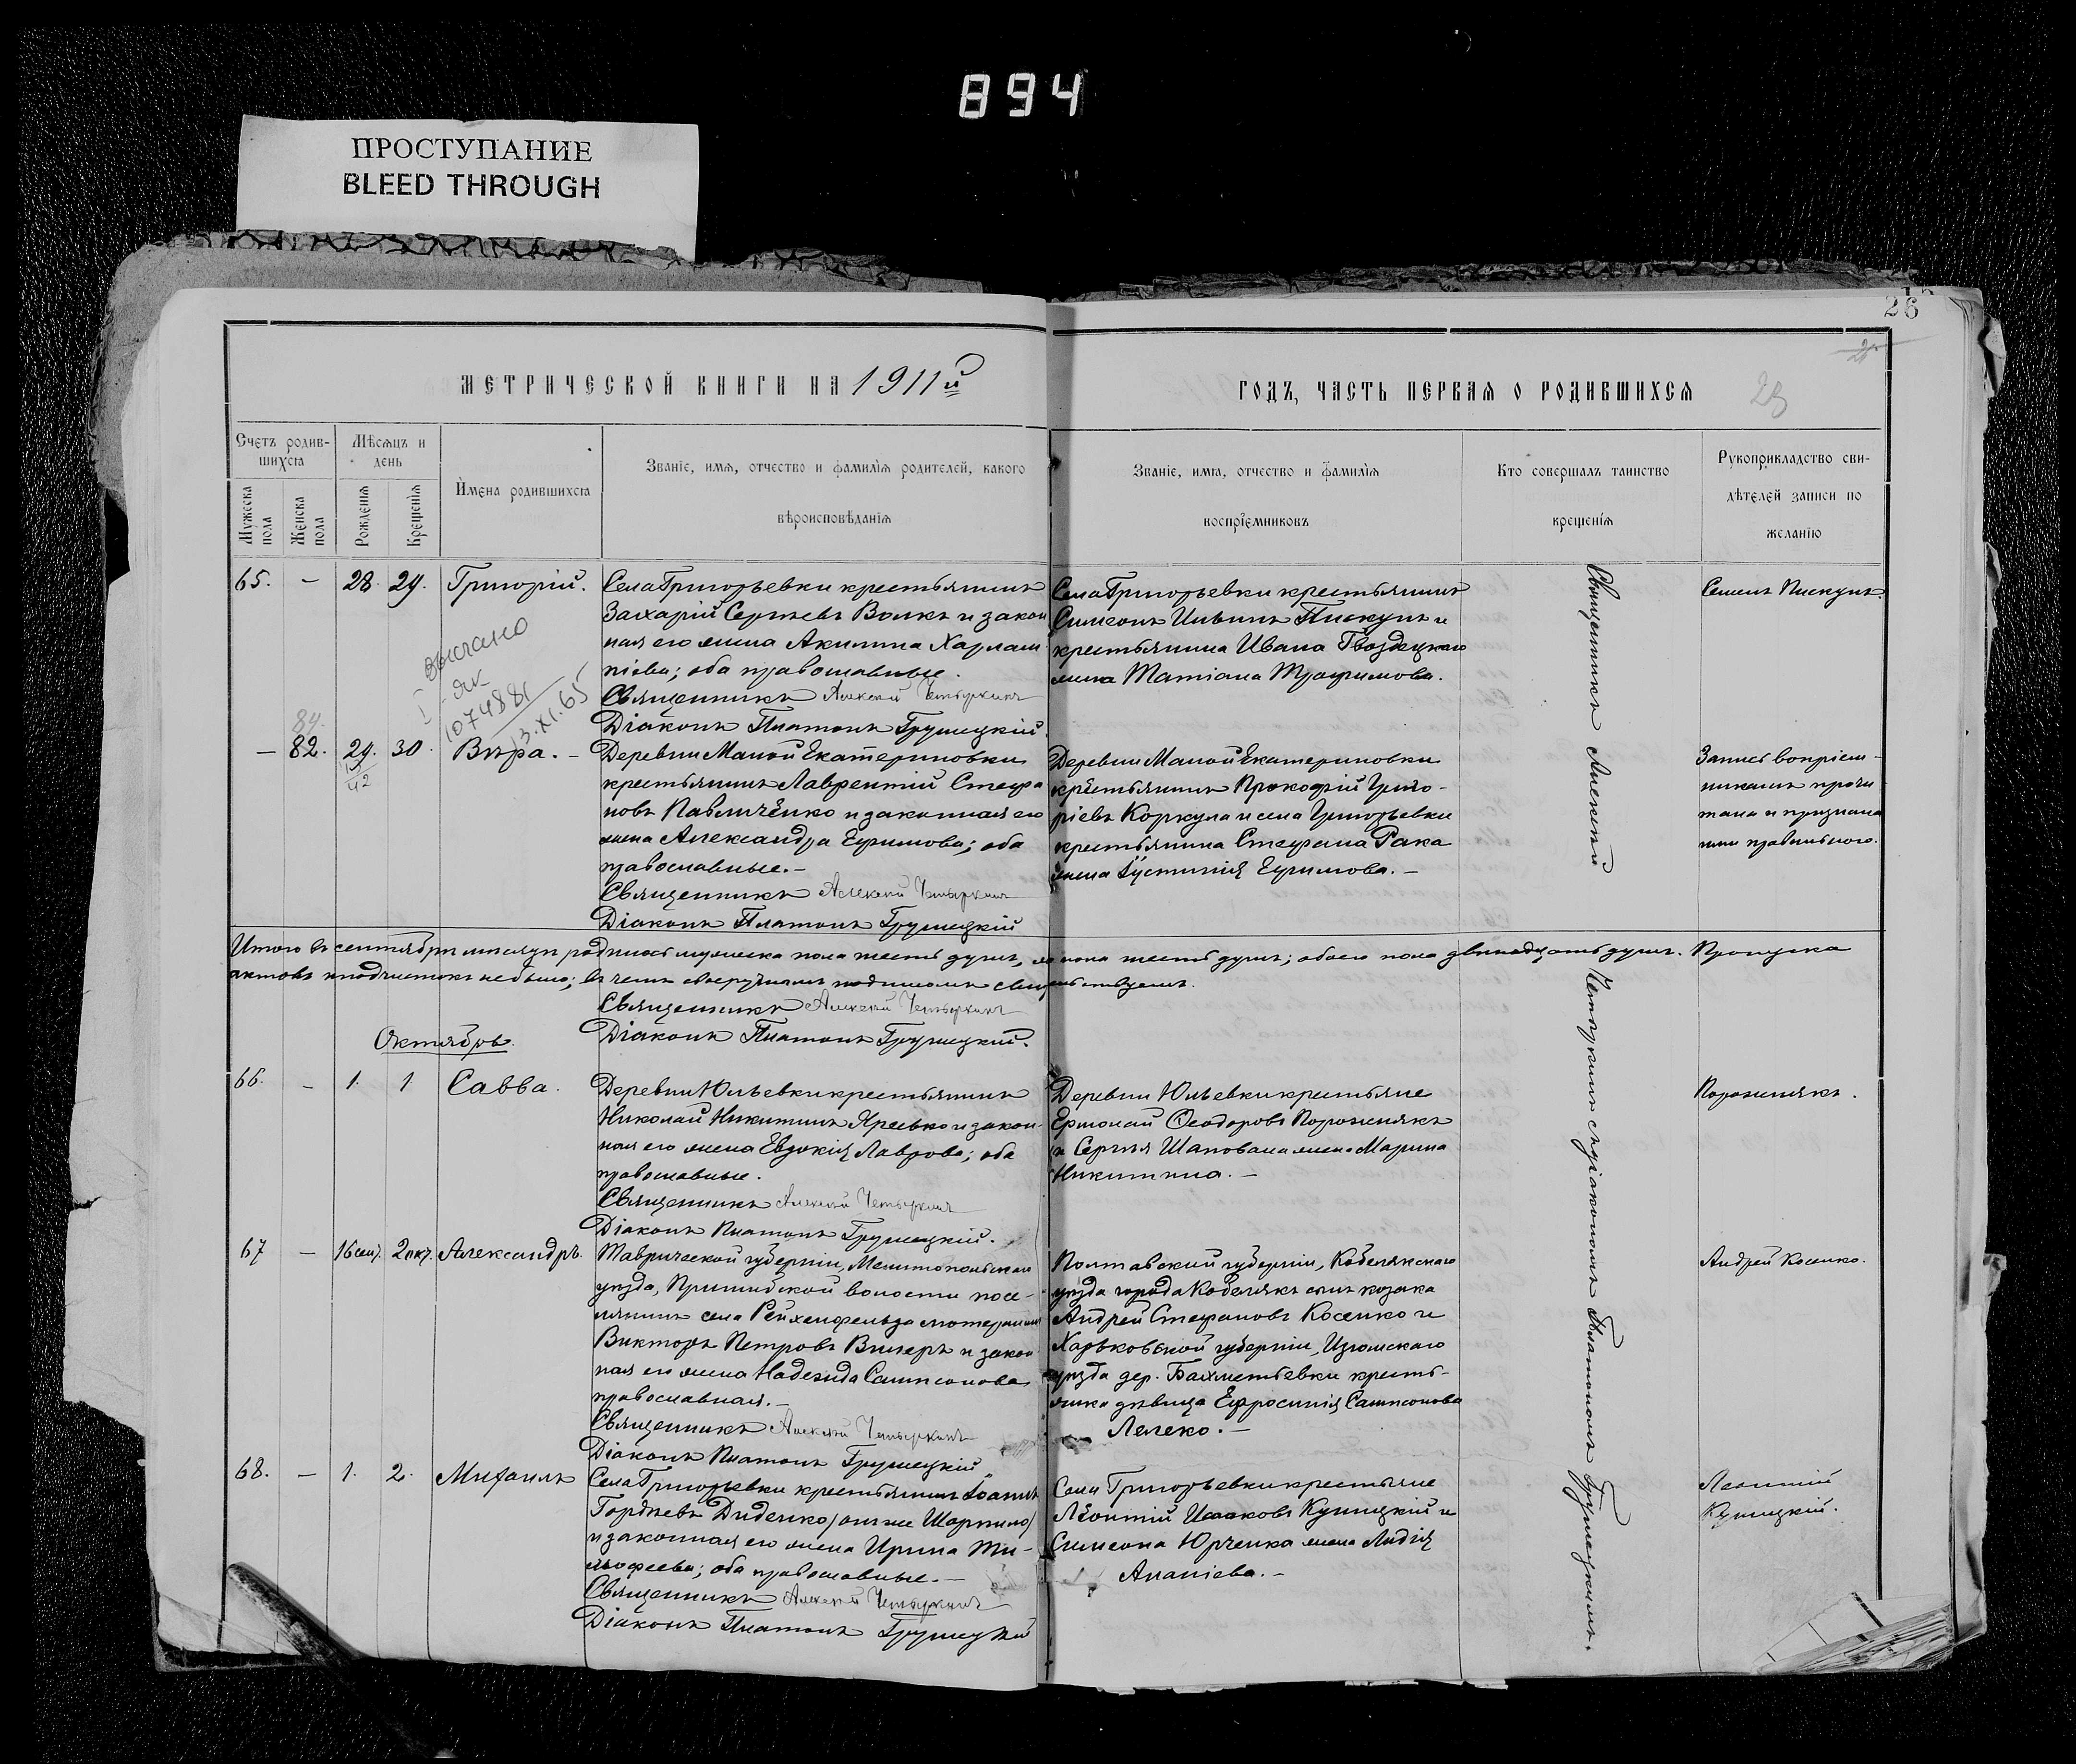 894
ПРОСТУПАНИЕ
BLEED THROUGH
26
МЕТРИЧЕСКОЙ КНИГИ НА 1911й
ГОДЪ, ЧАСТЬ ПЕРВАЯ О РОДИВШИХСЯ
23
Счетъ родив-
шихся
Мѣсяцъ и
день
Имена родившихся
Званіе, имя, отчество и фамилія родителей, какого
вѣроисповѣданія
Мужеска
пола
Женска
пола
Рожденія
Крещенія
Званіе, имя, отчество и фамилія
воспріемниковъ
Кто совершалъ таинство
крещенія
Рукоприкладство сви-
дѣтелей записи по
желанію
65. — 28. 29. Григорій.
Села Григорьевки крестьянинъ
Захарій Сергѣевъ Волкъ и закон
ная его жена Акилина Харлам
піева; оба православные.
Священникъ Алексій Четыркинъ
Діаконъ Платонъ Грушецкій
Села Григорьевки крестьянинъ
Симеонъ Пискунъ и
крестьянина Ивана Гвоздецкаго
жена Татіана Трофимова.
Семенъ Пискунъ.
выслано
1074881
3.XI.65
84.
— 82. 29. 30. Вѣра. —
Деревни Малой Екатериновки
крестьянинъ Лаврентій Стефа
новъ Павличенко и законная его
жена Александра Ефимова; оба
православные. —
Священникъ Алексій Четыркинъ
Діаконъ Платонъ Грушецкій
Деревни Малой Екатериновки
крестьянинъ Прокофій Григо-
ріевъ Коркула и села Григорьевки
крестьянина Стефана Рака
жена Іустинія Ефимова. —
Запись воспріем-
никамъ прочи
тана и признана
ими правильного.
Итого въ сентябрѣ мѣсяцѣ родилось мужеска пола шесть душъ, жен. пола шесть душъ; обоего пола двенадцать душъ. Пропуска
актовъ и подчистокъ не было; въ чемъ своеручнымъ подписомъ свидѣтельствуемъ.
Священникъ Алексій Четыркинъ
Діаконъ Платонъ Грушецкій.
Октябрь.
66. — 1. 1 Савва.
Деревни Юльевки крестьянинъ
Николай Никитинъ Яресько и закон-
ная его жена Евдокія Лаврова; оба
православные.
Священникъ Алексій Четыркинъ
Діаконъ Платонъ Грушецкій.
Деревни Юльевки крестьяне
Ермолай Ѳеодоровъ Порожнякъ
и Сергѣя Шаповала жена Марина
Никитина. —
Порожнякъ.
67 — 16 сен. 2 окт. Александръ.
Таврической губерніи, Мелитопольскаго
уѣзда, Пришибской волости посе-
лянинъ села Рейхенфельда лютеранинъ
Викторъ Петровъ и закон
ная его жена Надежда Сампсонова
православная. —
Священникъ Алексій Четыркинъ
Діаконъ Платонъ Грушецкій
Полтавской губерніи, Кобелякскаго
уѣзда города Кобелякъ сынъ козака
Андрей Стефановъ Косенко и
Харьковской губерніи, Изюмскаго
уѣзда дер. Бахметьевки кресть-
янка дѣвица Ефросинія Сампсонова
Лелеко. —
Андрей Косенко.
68. — 1. 2. Михаилъ
Села Григорьевки крестьянинъ Іоаннъ
Гордѣевъ Диденко /онъ же Шарпило/
и законная его жена Ирина Ти-
моѳеева; оба православные. —
Священникъ Алексій Четыркинъ
Діаконъ Платонъ Грушецкій
Села Григорьевки крестьяне
Леонтій Исааковъ Куницкій и
Симеона Юрченка жена Лидія
Ананіева. —
Леонтій
Куницкій.
Священникъ Алексій
Четыркинъ съ діакономъ Платономъ Грушецкимъ.